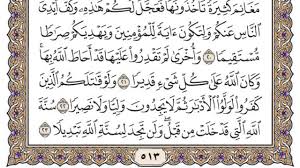 مَغَانِمَ كَثِيرَةً تَأْخُذُونَهَا فَعَجَّلَ لَكُمْ هَٰذِهِۦ وَكَفَّ أَيْدِىَ
ٱلنَّاسِ عَنكُمْ وَلِتَكُونَ ءَايَةً لِّلْمُؤْمِنِينَ وَيَهْدِيَكُمْ صِرَٰطًا
مُّسْتَقِيمًا ٢٠ وَأُخْرَىٰ لَمْ تَقْدِرُوا۟ عَلَيْهَا قَدْ أَحَاطَ ٱللَّهُ بِهَا ۚ
وَكَانَ ٱللَّهُ عَلَىٰ كُلِّ شَىْءٍ قَدِيرًا ٢١ وَلَوْ قَٰتَلَكُمُ ٱلَّذِينَ
كَفَرُوا۟ لَوَلَّوُا۟ ٱلْأَدْبَٰرَ ثُمَّ لَا يَجِدُونَ وَلِيًّا وَلَا نَصِيرًا ٢٢ سُنَّةَ
ٱللَّهِ ٱلَّتِى قَدْ خَلَتْ مِن قَبْلُ ۖ وَلَن تَجِدَ لِسُنَّةِ ٱللَّهِ تَبْدِيلًا ٢٣
٥١٣